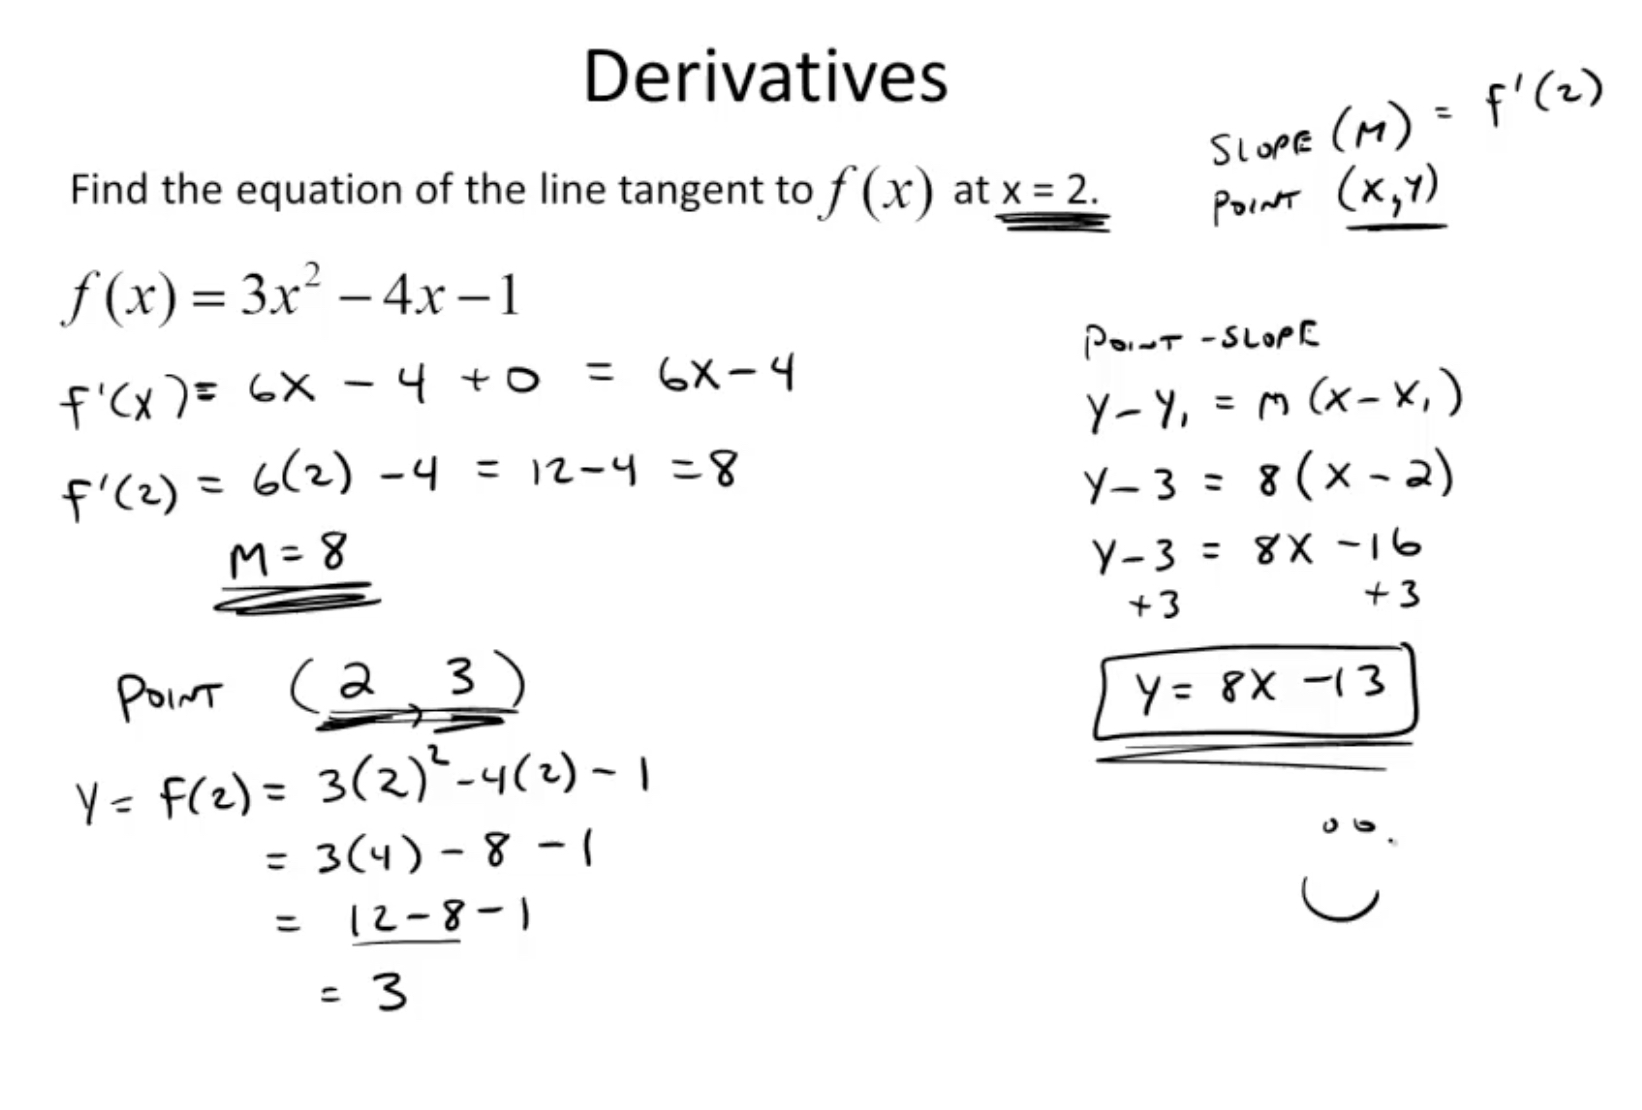 Derivatives
SLOPE (M) = f'(2)
POINT (X,Y)
Find the equation of the line tangent to f(x) at x = 2.
f(x) = 3x² – 4x – 1
f'(x) = 6X – 4 + 0 = 6X – 4
f'(2) = 6(2) – 4 = 12 – 4 = 8
M = 8
POINT (2, 3)
Y = f(2) = 3(2)² – 4(2) – 1
= 3(4) – 8 – 1
= 12 – 8 – 1
= 3
POINT – SLOPE
Y – Y₁ = M (X – X₁)
Y – 3 = 8 (X – 2)
Y – 3 = 8X – 16
+3 +3
Y = 8X – 13